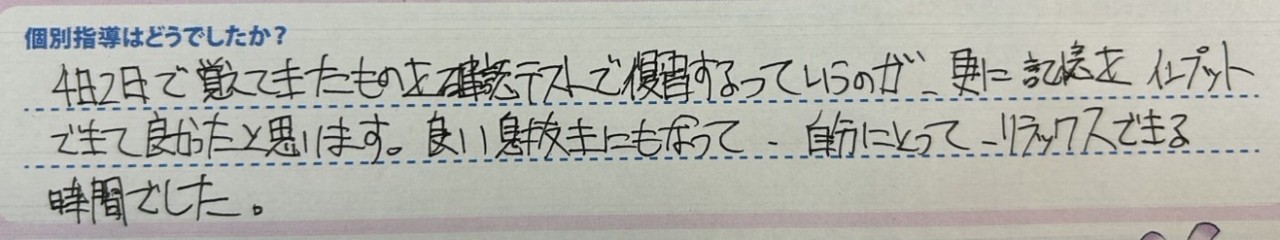 個別指導はどうでしたか？
4日2日で覚えてきたものを確認テストで復習するっていうのが、更に記憶をインプット
できて良かったと思います。良い息抜きにもなって、自分にとって、リラックスできる
時間でした。